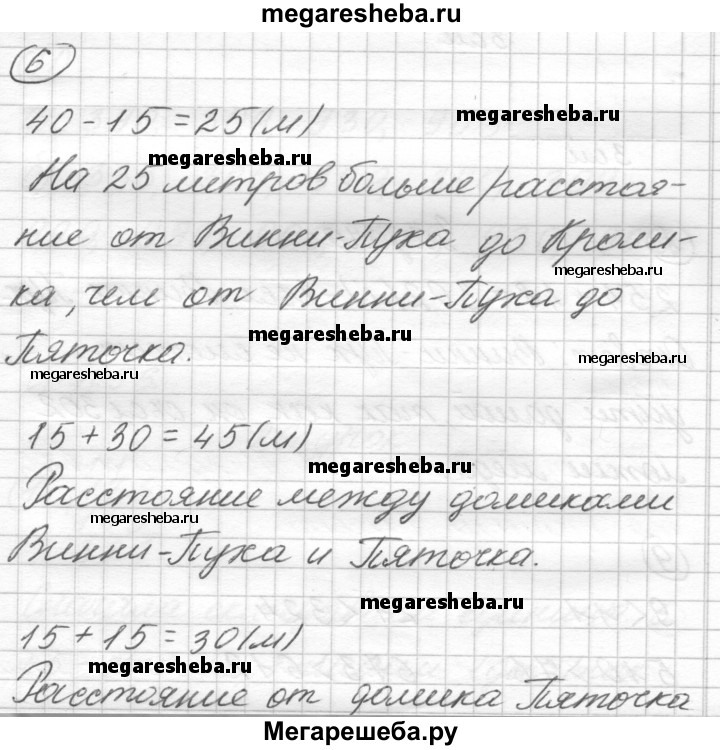 megaresheba.ru
6
40 - 15 = 25 (м)
megaresheba.ru
megaresheba.ru
На 25 метров больше расстоя-
ние от Винни-Пуха до Кроли-
megaresheba.ru
ка, чем от Винни-Пуха до
megaresheba.ru
Пяточка.
megaresheba.ru
megaresheba.ru
15 + 30 = 45 (м)
megaresheba.ru
Расстояние между домиками
megaresheba.ru
Винни-Пуха и Пяточка.
megaresheba.ru
15 + 15 = 30 (м)
megaresheba.ru
megaresheba.ru
Расстояние от домика Пяточка
Мегарешеба.ру